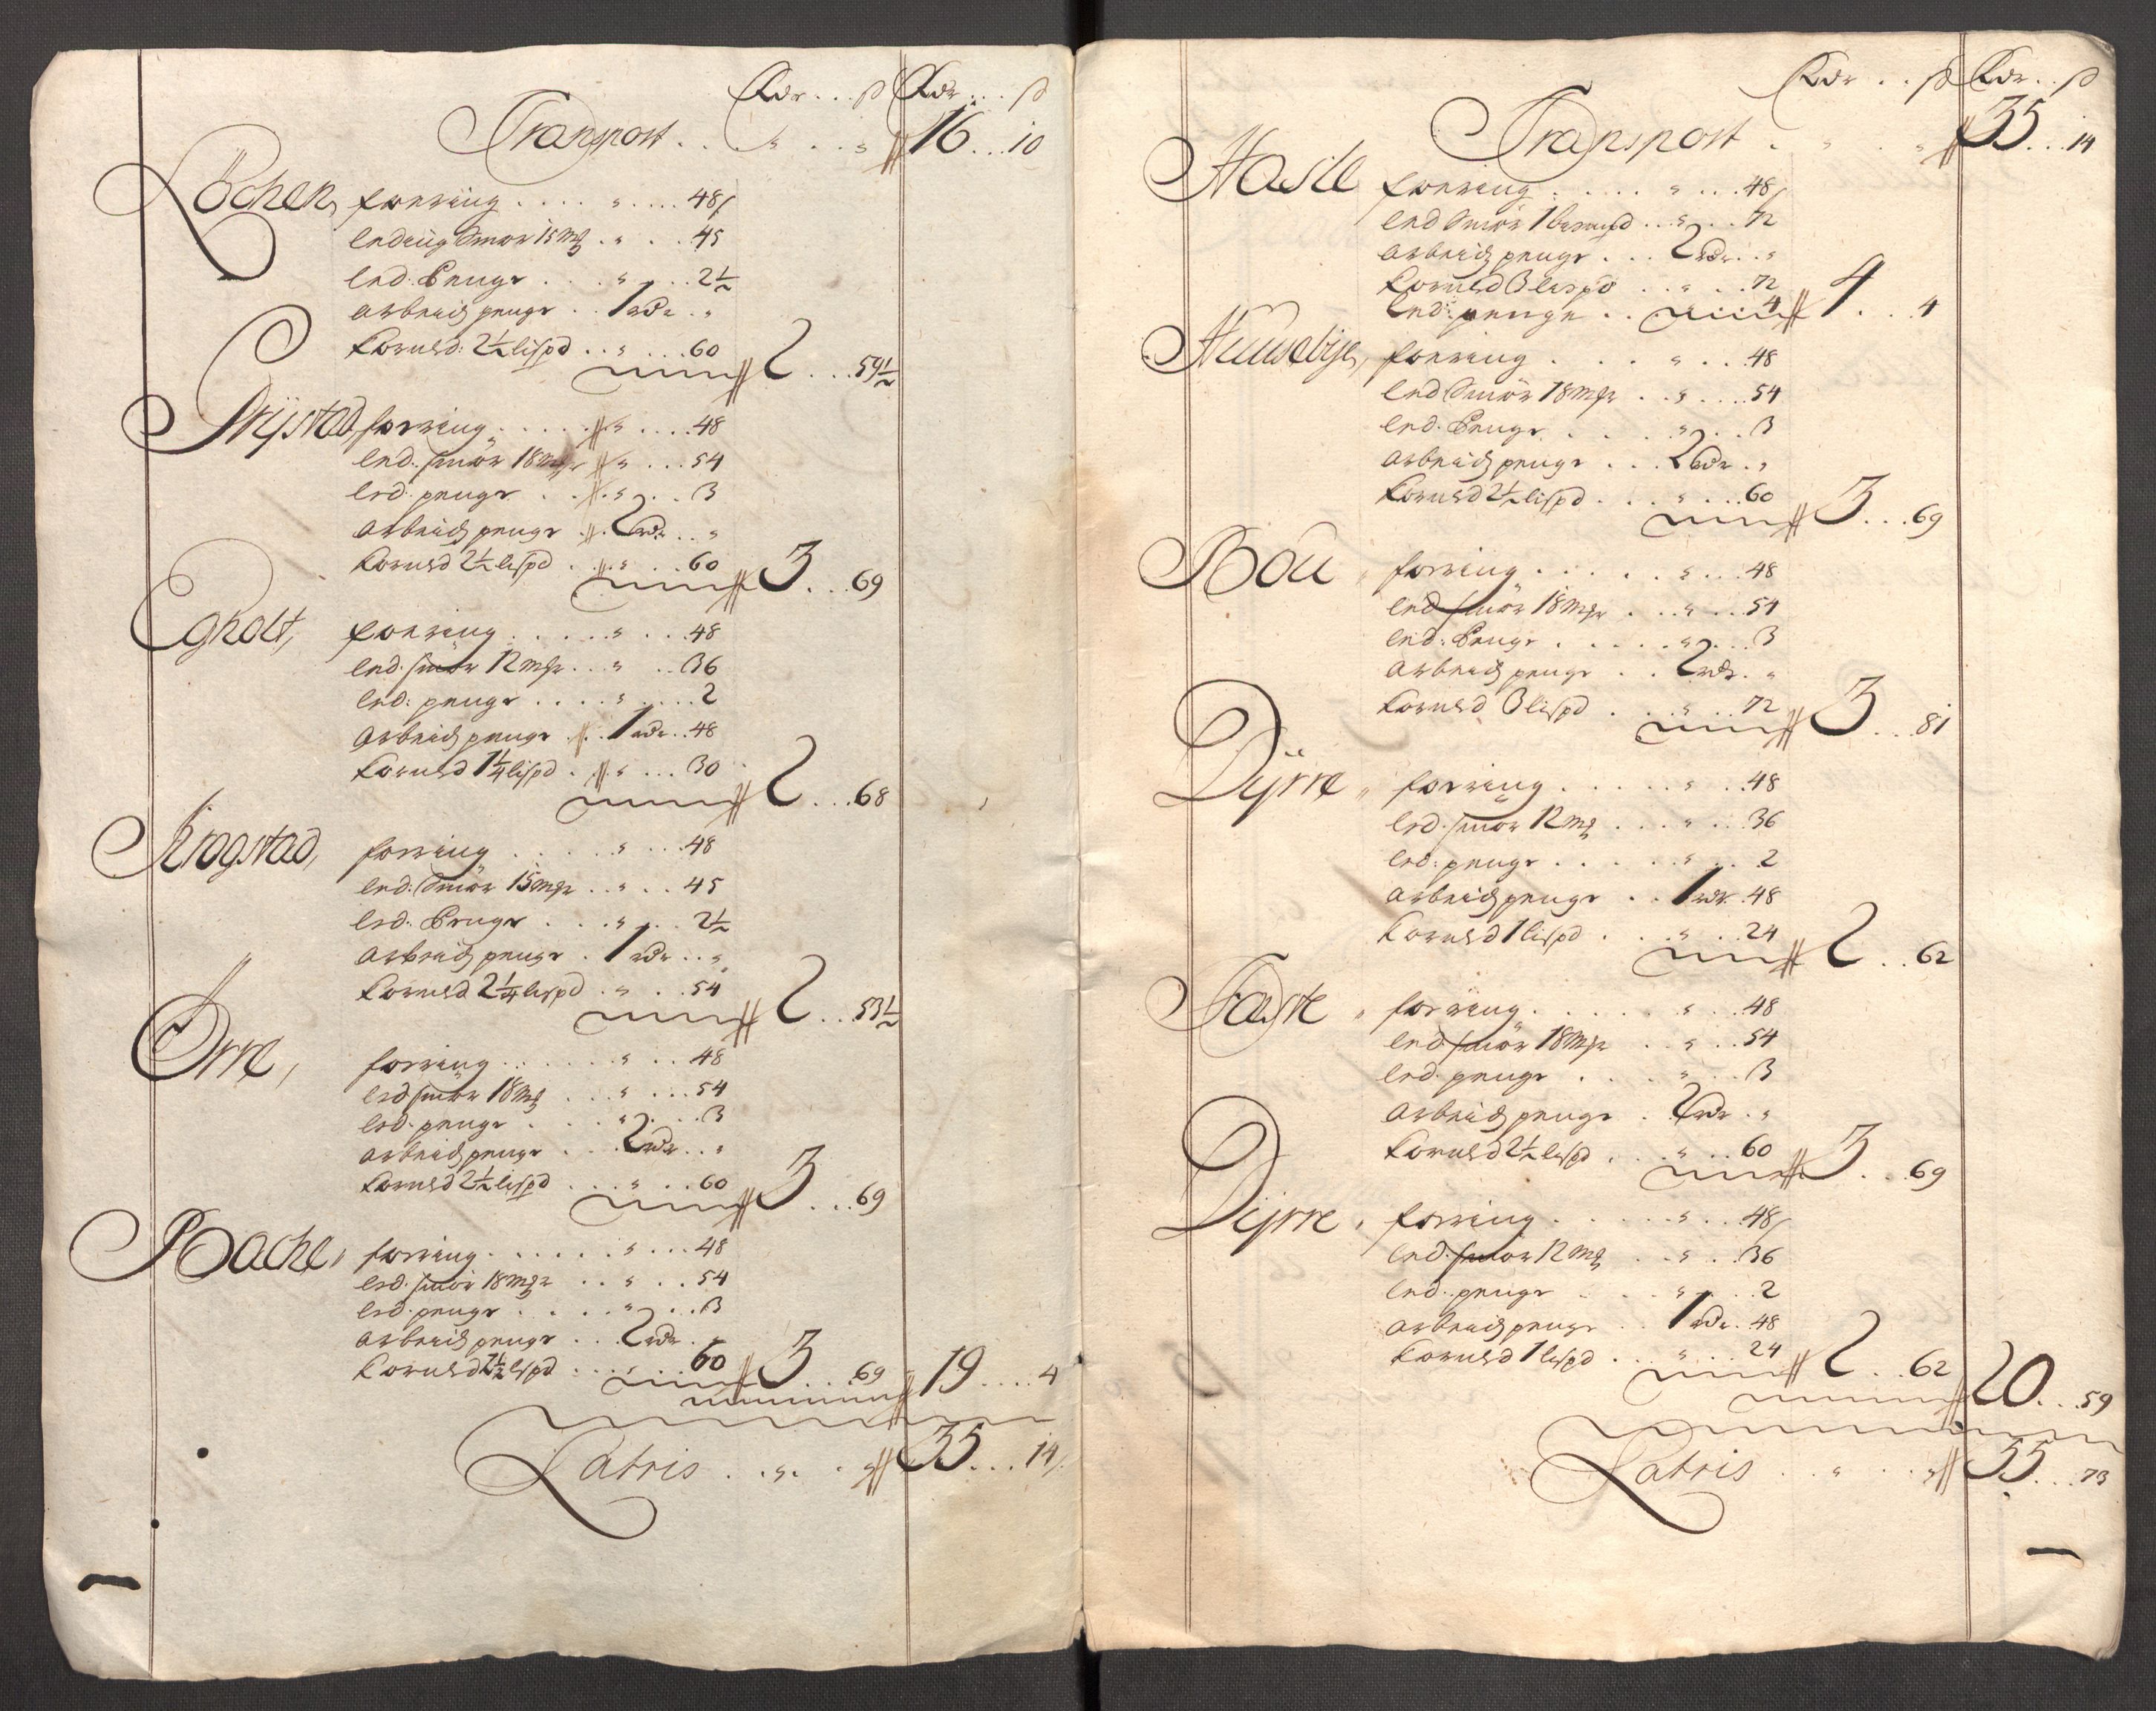 Rdr . . ß Rdr . . ß
Transport . . . 16 . . 10
Löchen, forring . . . . 48 ß
Leding smör 15 mk . . . 45
Led. Penge . . . 2½
Arbeids penge . . 1 Rdr . .
Kornld: 2½ lispd . . . 60
2 . . . 59½
Rÿstad, forring . . . . 48
Led. smör 18 mkr . . . 54
Led. penge . . . 3
Arbeids penge . 2 Rdr . .
Kornld 2½ lispd . . . 60
3 . . . 69
Egholt, forring . . . . 48
Led. smör 12 mkr . . . 36
Led: penge . . . . 2
Arbeids penge . . 1 Rdr . . 48
Kornld 1¼ lispd . . . 30
2 . . . 68
Krogstad, forring . . . . 48
Led. Smör 15 mkr . . . 45
Led. Penge . . . 2½
Arbeids penge . 1 Rdr . .
Kornld 2¼ lispd . . . 54
2 . . 53½
Ørre, forring . . . . 48
Led smör 18 mk . . . 54
Led. penge . . . 3
Arbeids penge . . 2 Rdr . .
Kornld 2½ lispd . . . 60
3 . . . 69
Bache, forring . . . . 48
Led. smör 18 mkr . . . 54
Led. penge . . . . 3
Arbeids penge . . 2 Rdr . .
Kornld 2½ lispd . . . 60
3 . . . 69 19 . . . . 4
Latris . . . 35 . . . 14
Rdr . . ß Rdr . . ß
Transport . . . 35 . . 14
Hasle forring . . . . 48 ß
Led Smör 1 bismpd . . . 72
Arbeids penge . . . 2 Rdr . .
Kornld 3 lispd . . . 72
Led: penge . . 4
4 . . . 4
Huusebye, forring . . . . 48
Led Smör 18 mkr . . . 54
Led. Penge . . . 3
Arbeids penge . . . 2 Rdr . .
Kornld 2½ lispd . . . 60
3 . . . 69
Böu, forring . . . . 48
Led smör 18 mkr . . . 54
Led: Penge . . . 3
Arbeids penge . . 2 Rdr . .
Kornld 3 lispd . . . 72
3 . . . 81
Dÿrre, forring . . . . 48
Led. smör 12 mk . . . 36
Led: penge . . . . 2
Arbeids penge . . 1 Rdr . 48
Kornld 1 lispd . . . 24
2 . . 62
Faste, forring . . . . 48
Led smör 18 mkr . . . 54
Led. penge . . . 3
Arbeids penge . 2 Rdr . .
Kornld 2½ lispd . . . 60
3 . . . 69
Dÿrre, forring . . . . 48 ß
Led. smör 12 mk . . . 36
Led. penge . . . 2
Arbeids penge . . 1 Rdr . 48
Kornld 1 lispd . . . 24
2 . . . 62 20 . . . 59
Latris . . . 55 . . . 73